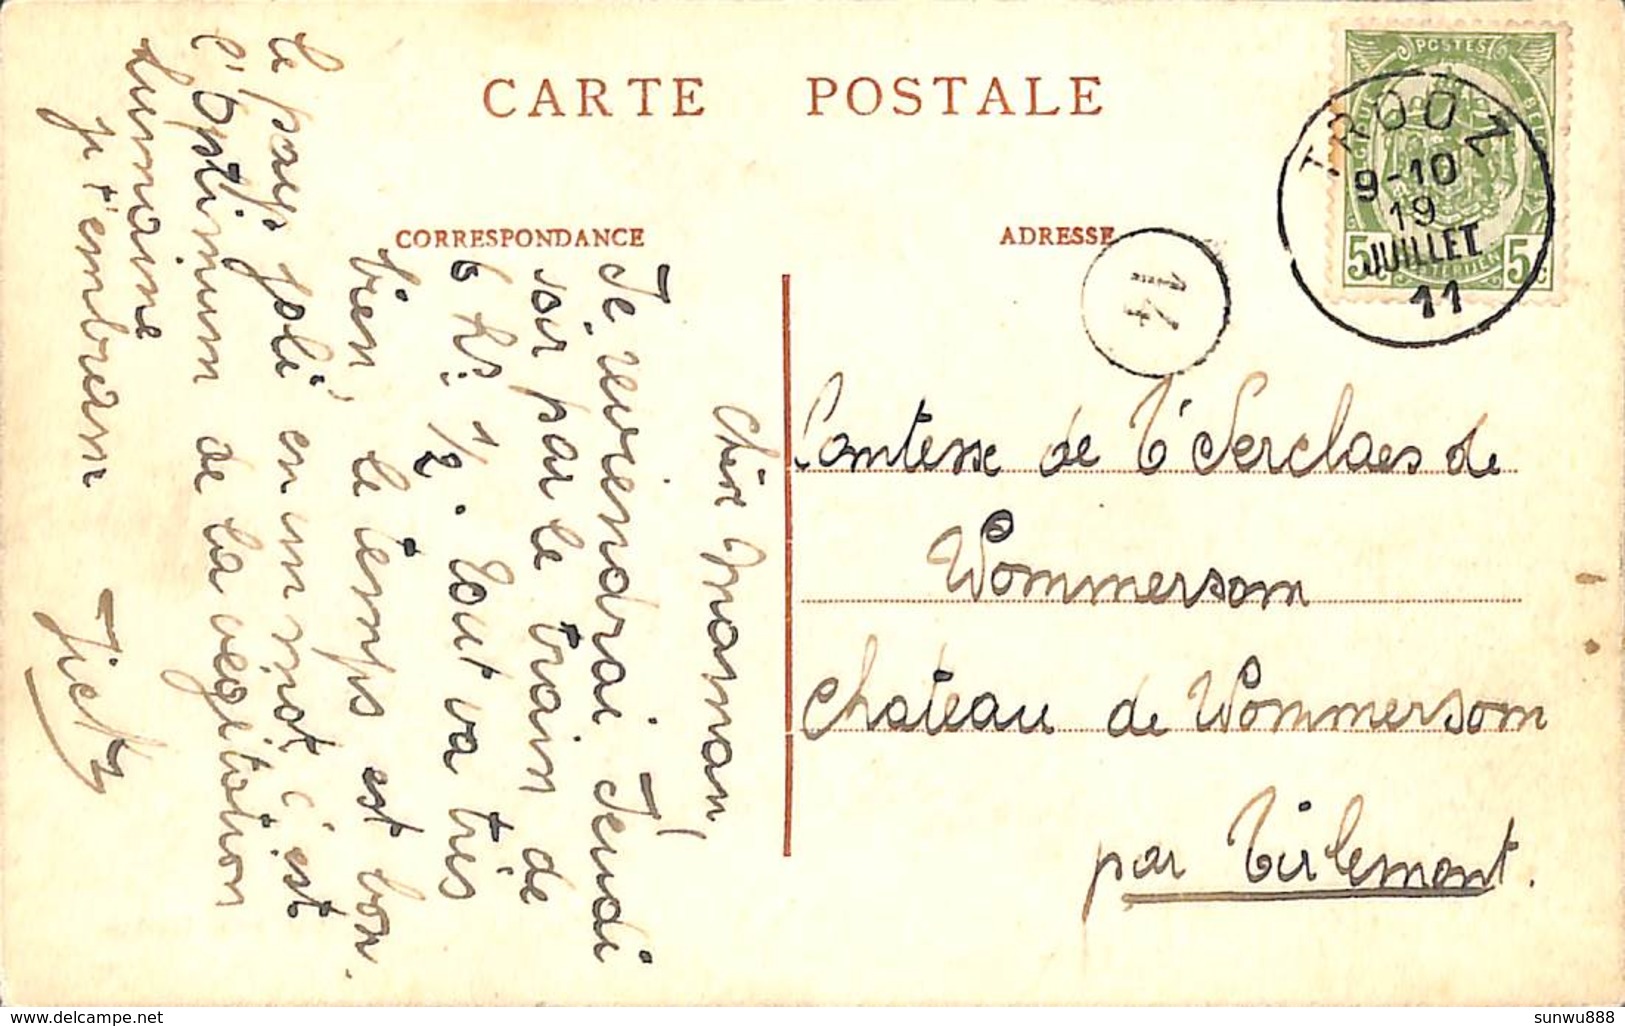 CARTE POSTALE
CORRESPONDANCE
ADRESSE
POSTES
BELGIQUE
5c
5c
TROOZ
9-10
19
JUILLET
11
14
Chère Maman,
Je reviendrai Jeudi
soir par le train de
6 hs 1/2. Tout va très
bien, le temps est bon.
Le pays joli en un mot c'est
l'optimum de la végétation
humaine
je t'embrasse
Comtesse de T'Serclaes de
Wommersom
Chateau de Wommersom
par Tirlemont.
delcampe.net
sunwu888